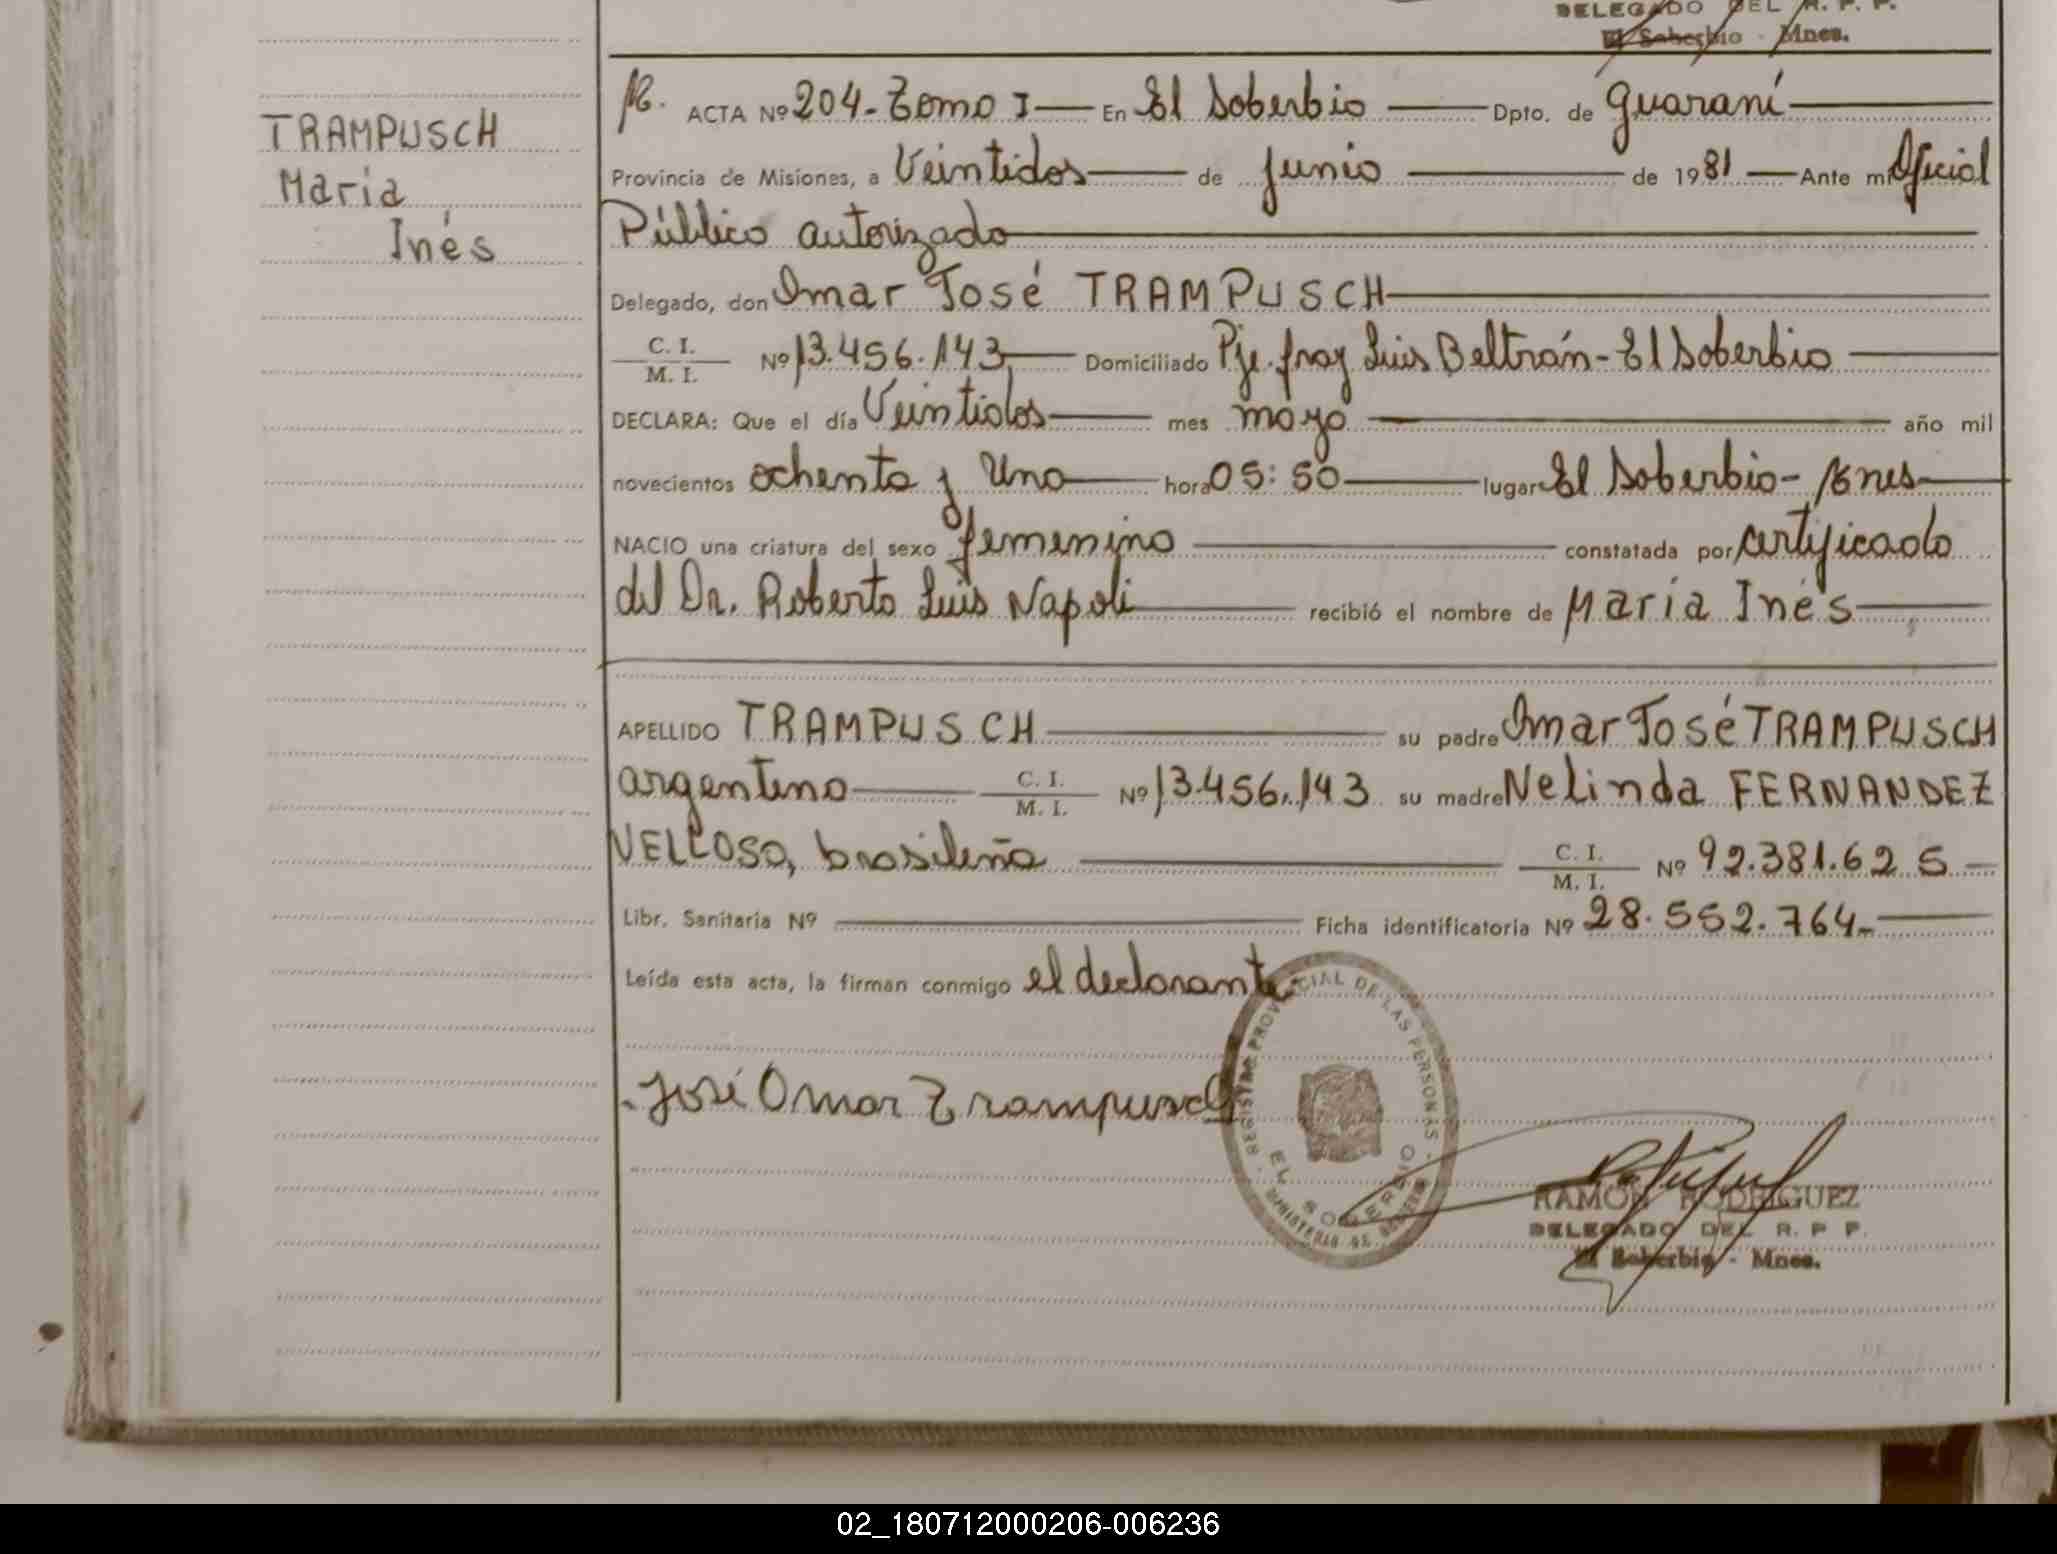 DELEGADO DEL R. P. P.
El Soberbio - Mnes.
TRAMPUSCH
María
Inés
ACTA Nº 204 - Tomo I En El Soberbio Dpto. de Guaraní
Provincia de Misiones, a Veintidos de Junio de 1981 Ante mi Oficial
Público autorizado
Delegado, don Omar José TRAMPUSCH
C. I.
M. I. Nº 13.456.143 Domiciliado Pje. fray Luis Beltrán - El Soberbio
DECLARA: Que el día Veintidos mes mayo año mil
novecientos ochenta y Uno hora 05:50 lugar El Soberbio - Mnes
NACIO una criatura del sexo femenino constatada por certificado
del Dr. Roberto Luis Napoli recibió el nombre de María Inés
APELLIDO TRAMPUSCH su padre Omar José TRAMPUSCH
argentino C. I. M. I. Nº 13.456.143 su madre Nelinda FERNANDEZ
VELLOSO, brasileña C. I. M. I. Nº 92.381.625
Libr. Sanitaria Nº Ficha identificatoria Nº 28.552.764-
Leída esta acta, la firman conmigo el declarante.
José Omar Trampusch
REGISTRO PROVINCIAL DE LAS PERSONAS
EL SOBERBIO
MINISTERIO DE GOBIERNO
RAMON RODRIGUEZ
DELEGADO DEL R. P P.
El Soberbio - Mnes.
02_180712000206-006236